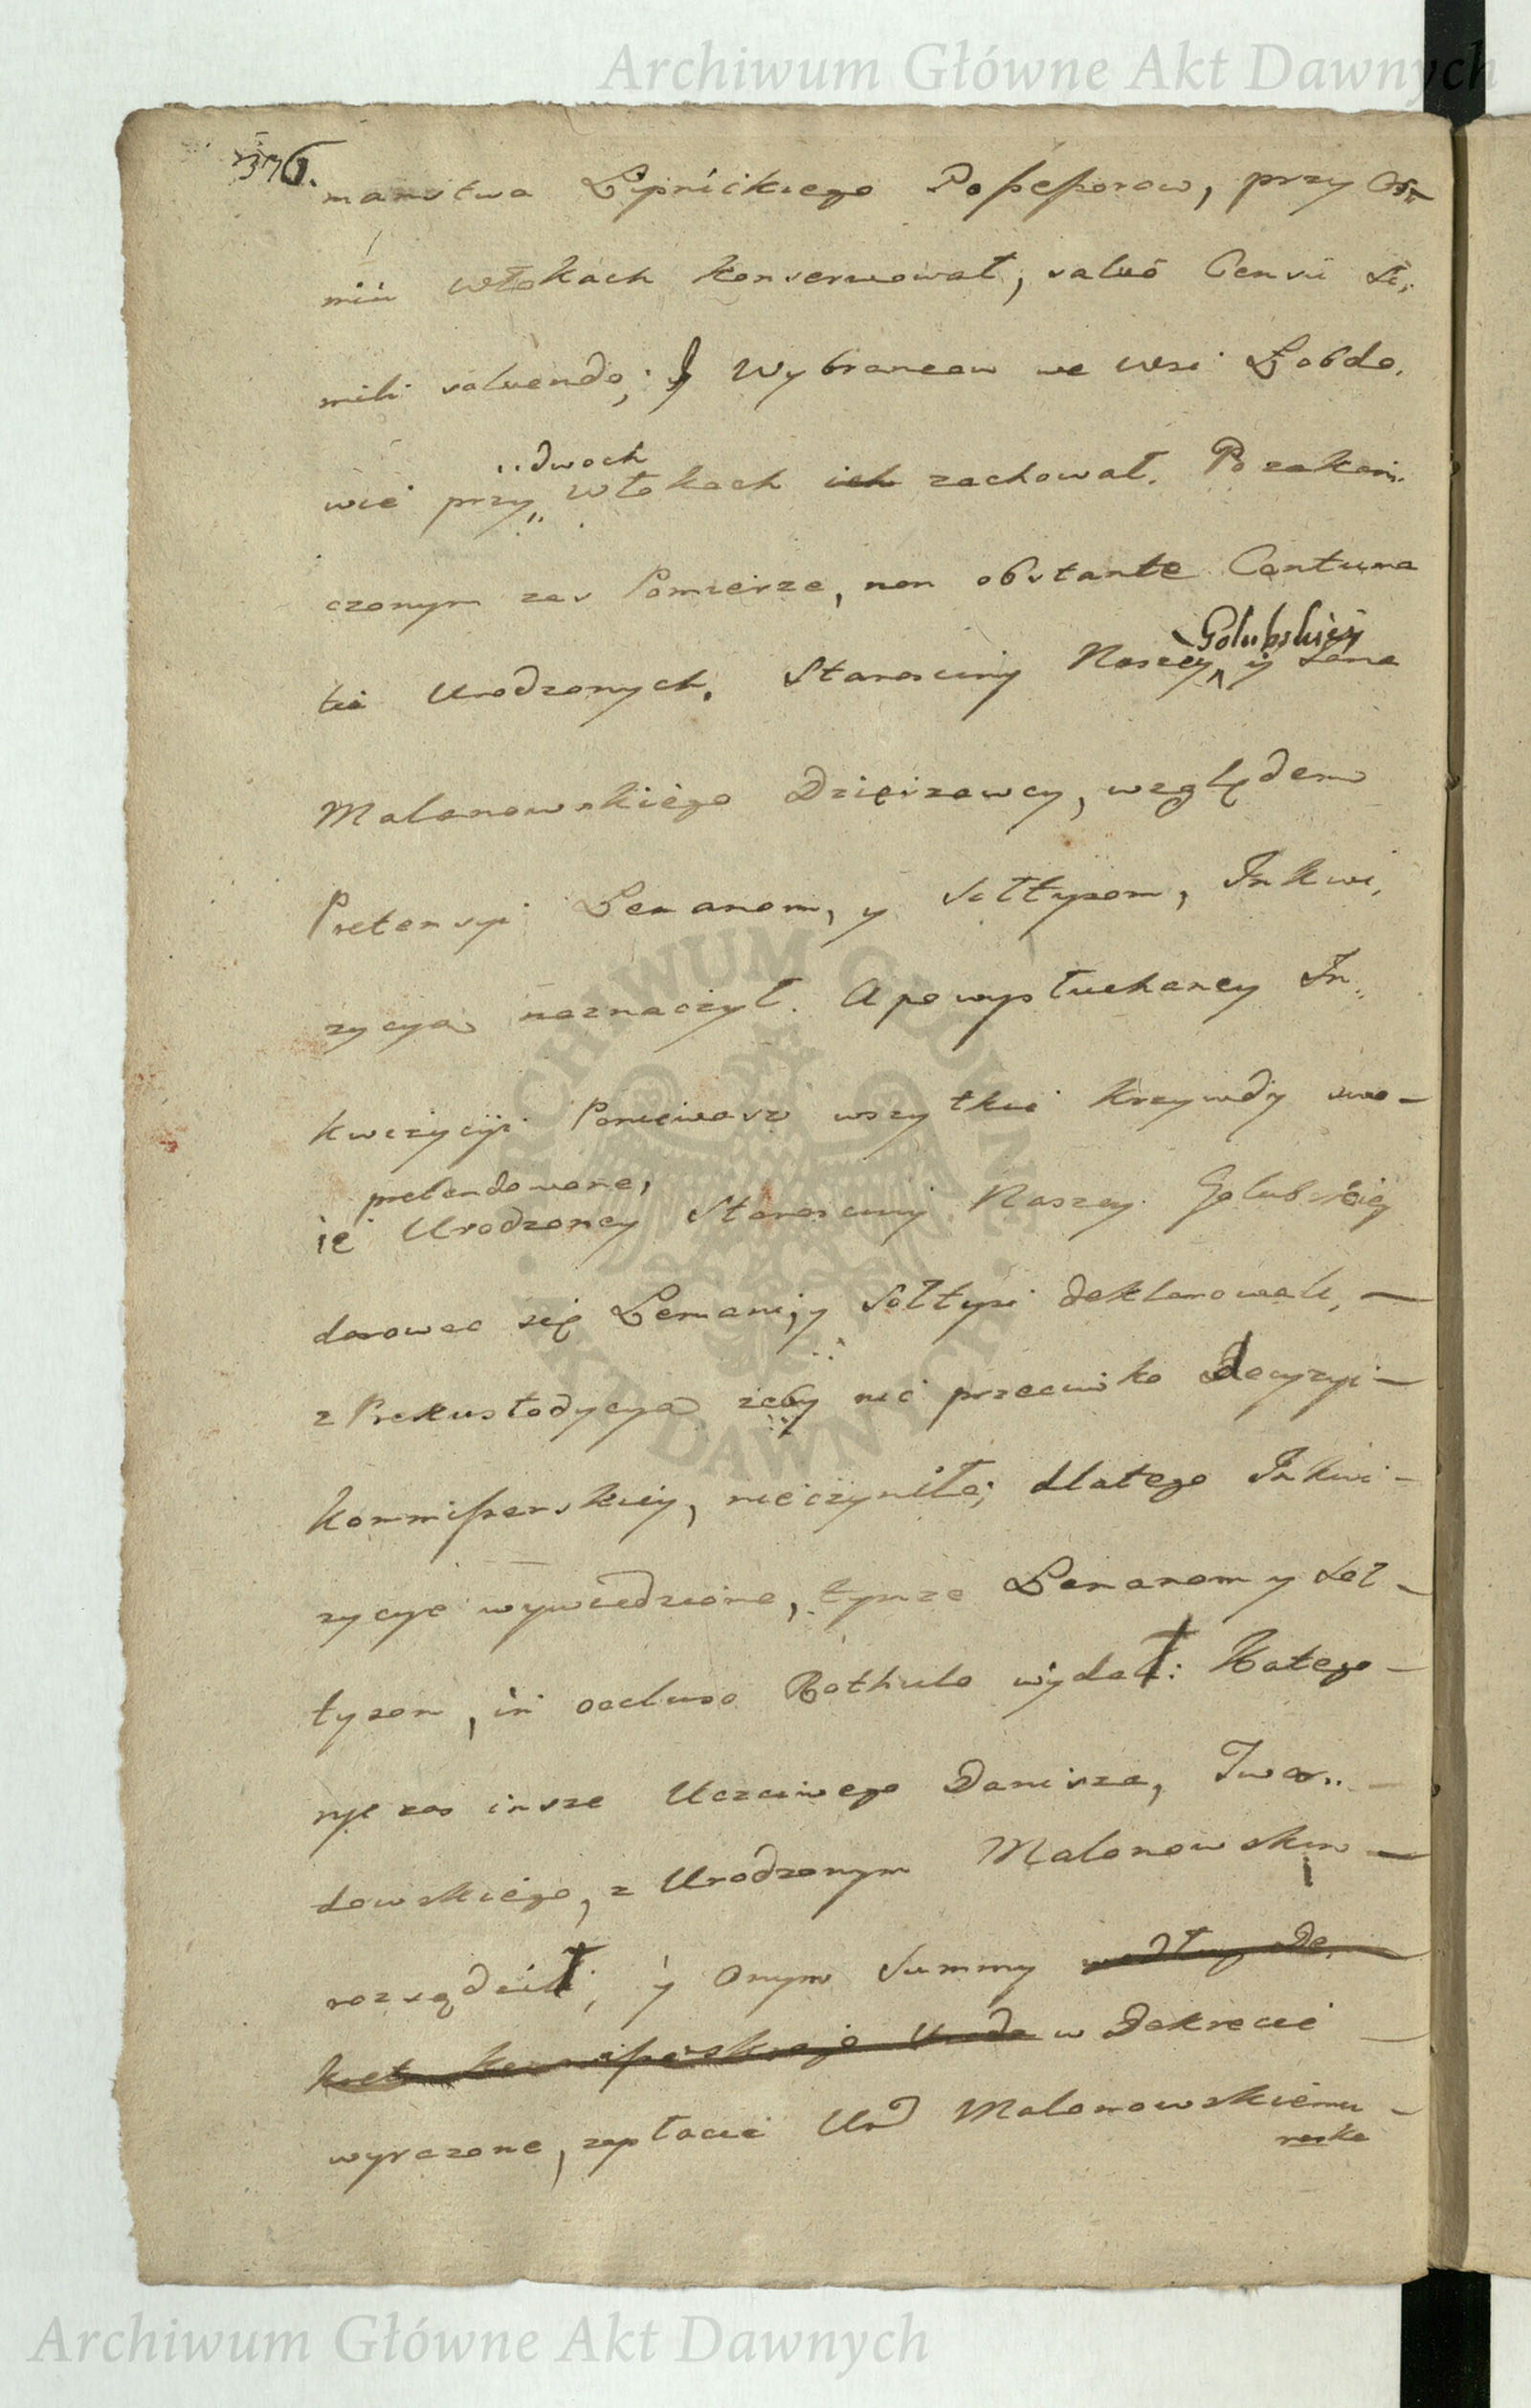 Archiwum Główne Akt Dawnych
376.
maństwa Lipnickiego Possessorow, przy Os-
miu Włokach konserwował, salvo Censu Si,
mili solvendo; y Wybrancow we Wsi Łobdo,
dwoch
wie przy Włokach ich zachował. Po zakoń,
czonym zas Pomierze, non obstante Contuma
Golubskiey
tia Urodzonych, Starosciny Naszey y Jana
Malanowskiego Dzierzawcy, względem
Pretensyi Lemanom, y Sołtysom, Inkwi,
zycya naznaczył. A po wysłuchaney In,,
kwizycyi Poniewasz wszytkie krzywdy swo-
pretendowane,
ie Urodzoney Starosciny Naszey Golubskiey
darowac się Lemani, y Sołtysi deklarowali, —
z Prekustodycya żeby nic przeciwko decyzyi —
kommissarskiey, nieczyniła; dlatego Inkwi-
zycye wywiedzione, tymze Lemanom y Soł-
tysom, in occluso Rothulo wydał: Katego-
rye zas insze Uczciwego Danisza, Iwa,,
dowskiego, z Urodzonym Malonowskim —
rozsądził; y Onym Summy według De,
kretu kommissarskiego Urodz w Dekrecie —
wyrazone, zapłacic Urd Malonowskiemu -
ARCHIWUM GŁÓWNE AKT DAWNYCH
Archiwum Główne Akt Dawnych